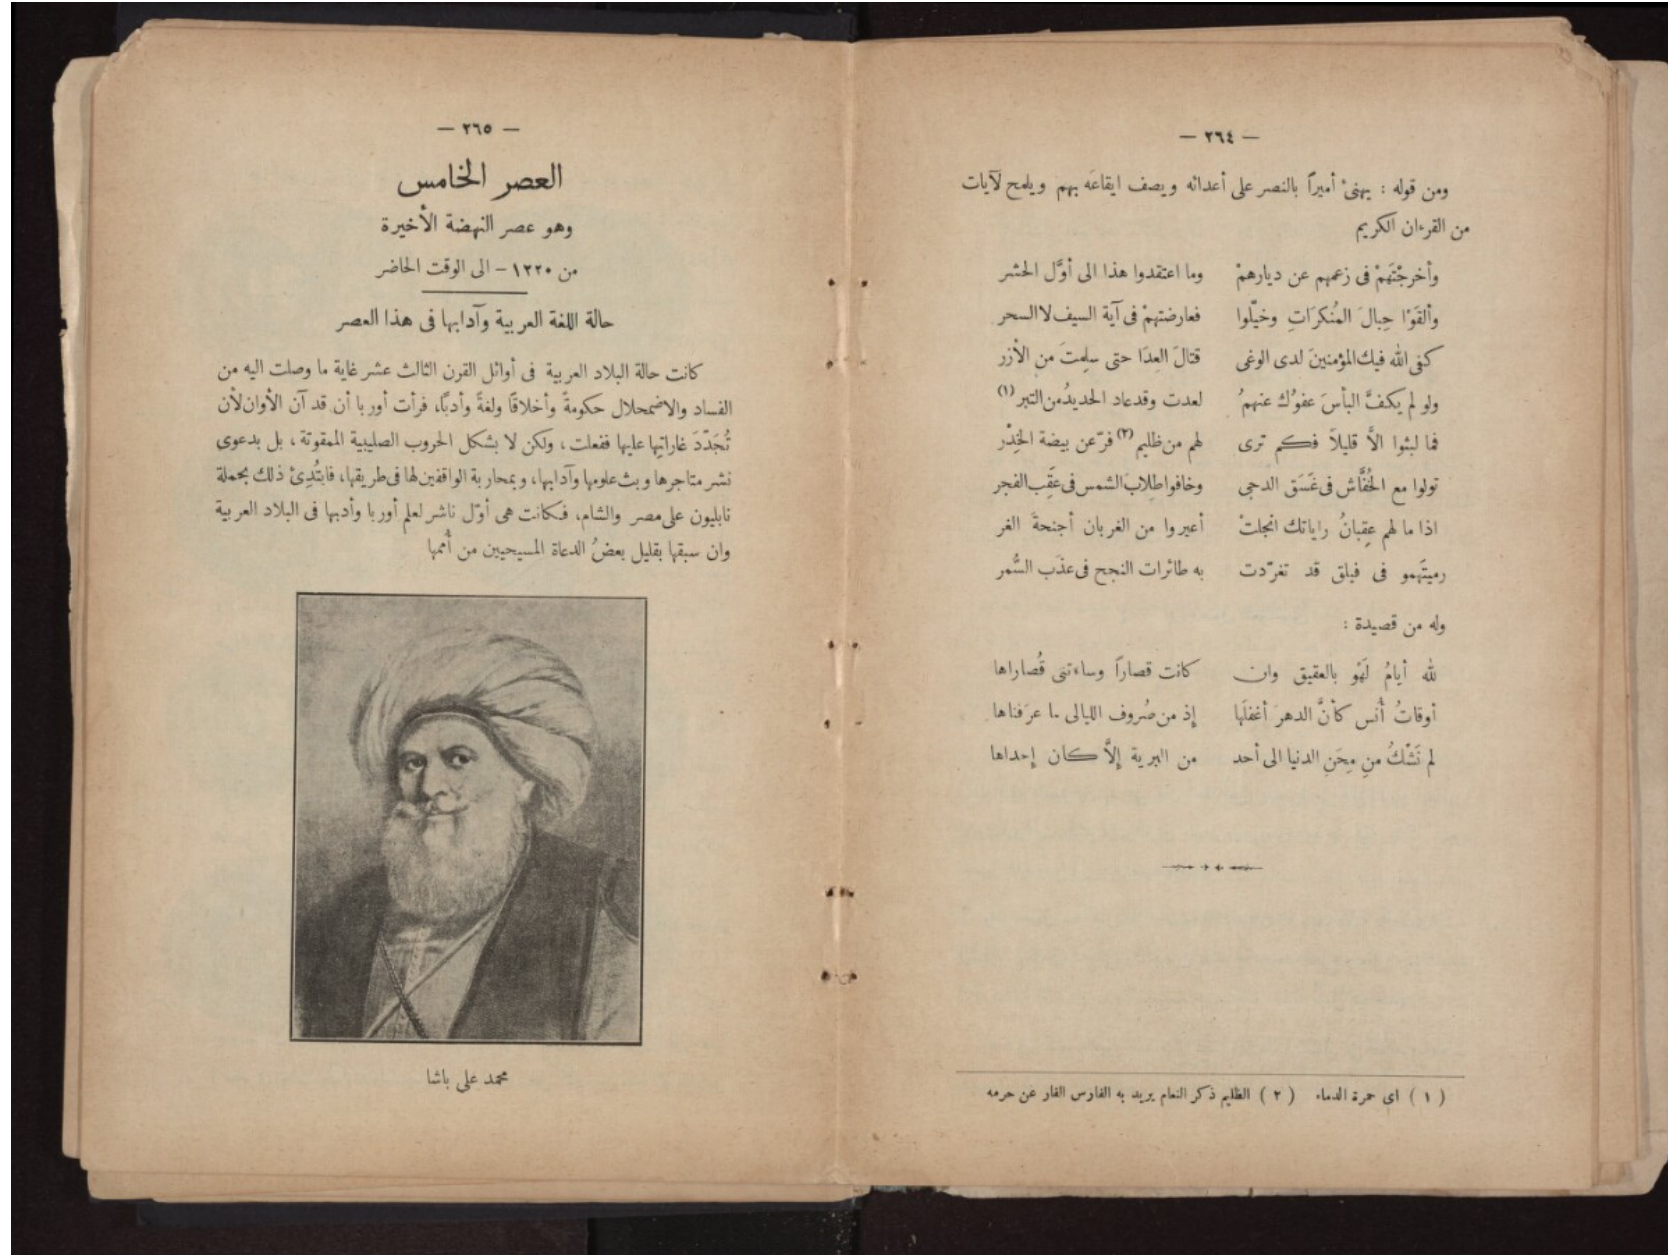 — ٢٦٤ —
ومن قوله : يهنئ أميراً بالنصر على أعدائه ويصف ايقاعَه بهم ويلمح لآيات
من القرءان الكريم
وأخرجْتَهمْ فى زعمهم عن ديارهمْ وما اعتقدوا هذا الى أوَّل الحشر
وألقَوْا حِبالَ المُنكرَاتِ وخيّلوا فعارضتهمْ فى آية السيف لا السحر
كفى الله فيك المؤمنينَ لدى الوغى قتالَ العِدَا حتى سلِمتَ من الأزر
ولو لم يكفَّ البأسَ عفوُك عنهمُ لعدت وقد عاد الحديدُ من التبر (١)
فما لبثوا الاَّ قليلاً فكم ترى لهم من ظليم (٢) فرّ عن بيضة الخِدْر
تولوا مع الخُفَّاش فى غَسَق الدجى وخافوا طِلابَ الشمس فى عَقِب الفجر
اذا ما لهم عِقبانُ راياتك انجلتْ أعيروا من الغربان أجنحةَ الغر
رميتَهمو فى فيلق قد تغرّدت به طائرات النجح فى عذَب السُّمر
وله من قصيدة :
لله أيامُ لَهْو بالعقيق وان كانت قصاراً وساءتنى قُصاراها
أوقاتُ أُنس كأنَّ الدهرَ أغفلَها إذ من صُروف الليالى ما عرَفناها
لم نَشْكُ منِ مِحَنِ الدنيا الى أحد من البرية إلاَّ كان إحداها
( ١ ) اى حمرة الدماء ( ٢ ) الظليم ذكر النعام يريد به الفارس الفار عن حرمه
— ٢٦٥ —
العصر الخامس
وهو عصر النهضة الأخيرة
من ١٢٢٠ - الى الوقت الحاضر
حالة اللغة العربية وآدابها فى هذا العصر
كانت حالة البلاد العربية فى أوائل القرن الثالث عشر غاية ما وصلت اليه من
الفساد والاضمحلال حكومةً وأخلاقًا ولغةً وأدبًا، فرأت أوربا أن قد آن الأوان لأن
تُجَدّدَ غاراتِها عليها ففعلت، ولكن لا بشكل الحروب الصليبية الممقوتة، بل بدعوى
نشر متاجرها وبث علومها وآدابها، وبمحاربة الواقفين لها فى طريقها، فابتُدِئ ذلك بحملة
نابليون على مصر والشام، فكانت هى أوّل ناشر لعلم أوربا وأدبها فى البلاد العربية
وان سبقها بقليل بعضُ الدعاة المسيحيين من أُممها
محمد على باشا